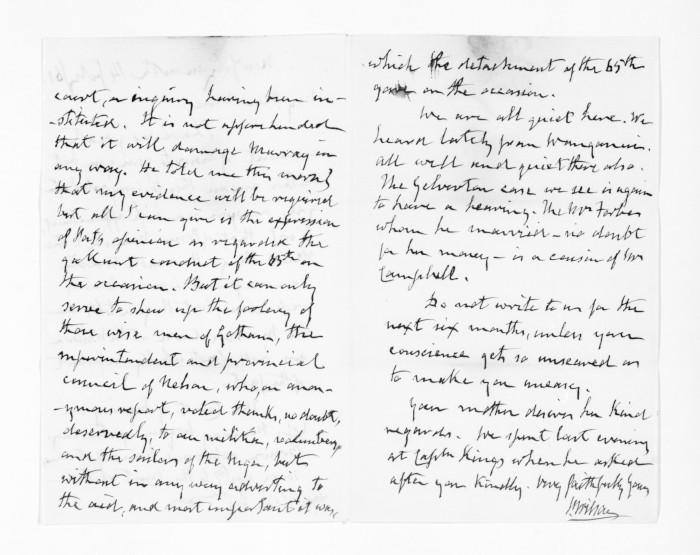 court, or inquiry having been in-
-stituted. It is not apprehended
that it will damage Murray in
any way. He told me this morng
that my evidence will be required
but all I can give is the expression
of opinion as regarded the
gallant conduct of the 65th on
the occasion. But it can only
serve to show up the foolery of
those wise men of Gotham, the
superintendent and provincial
council of Nelson, who, on anon-
-ymous report, voted thanks, no doubt,
deservedly, to our militia, volunteers
and the sailors of the Niger, but
without in any way adverting to
the aid, and most important it was,
which the detachment of the 65th
gave on the occasion.
We are all quiet here. We
heard lately from Wanganui.
all well and quiet there also.
The Yelverton case we see is again
to have a hearing. The Mrs Forbes
whom he married - no doubt
for her money - is a cousin of Mrs
Campbell.
Do not write to us for the
next six months, unless your
conscience gets so unseared as
to make you uneasy.
Your mother desires her kind
regards. We spent last evening
at Captn Kings when he asked
after you kindly. Very faithfully yours